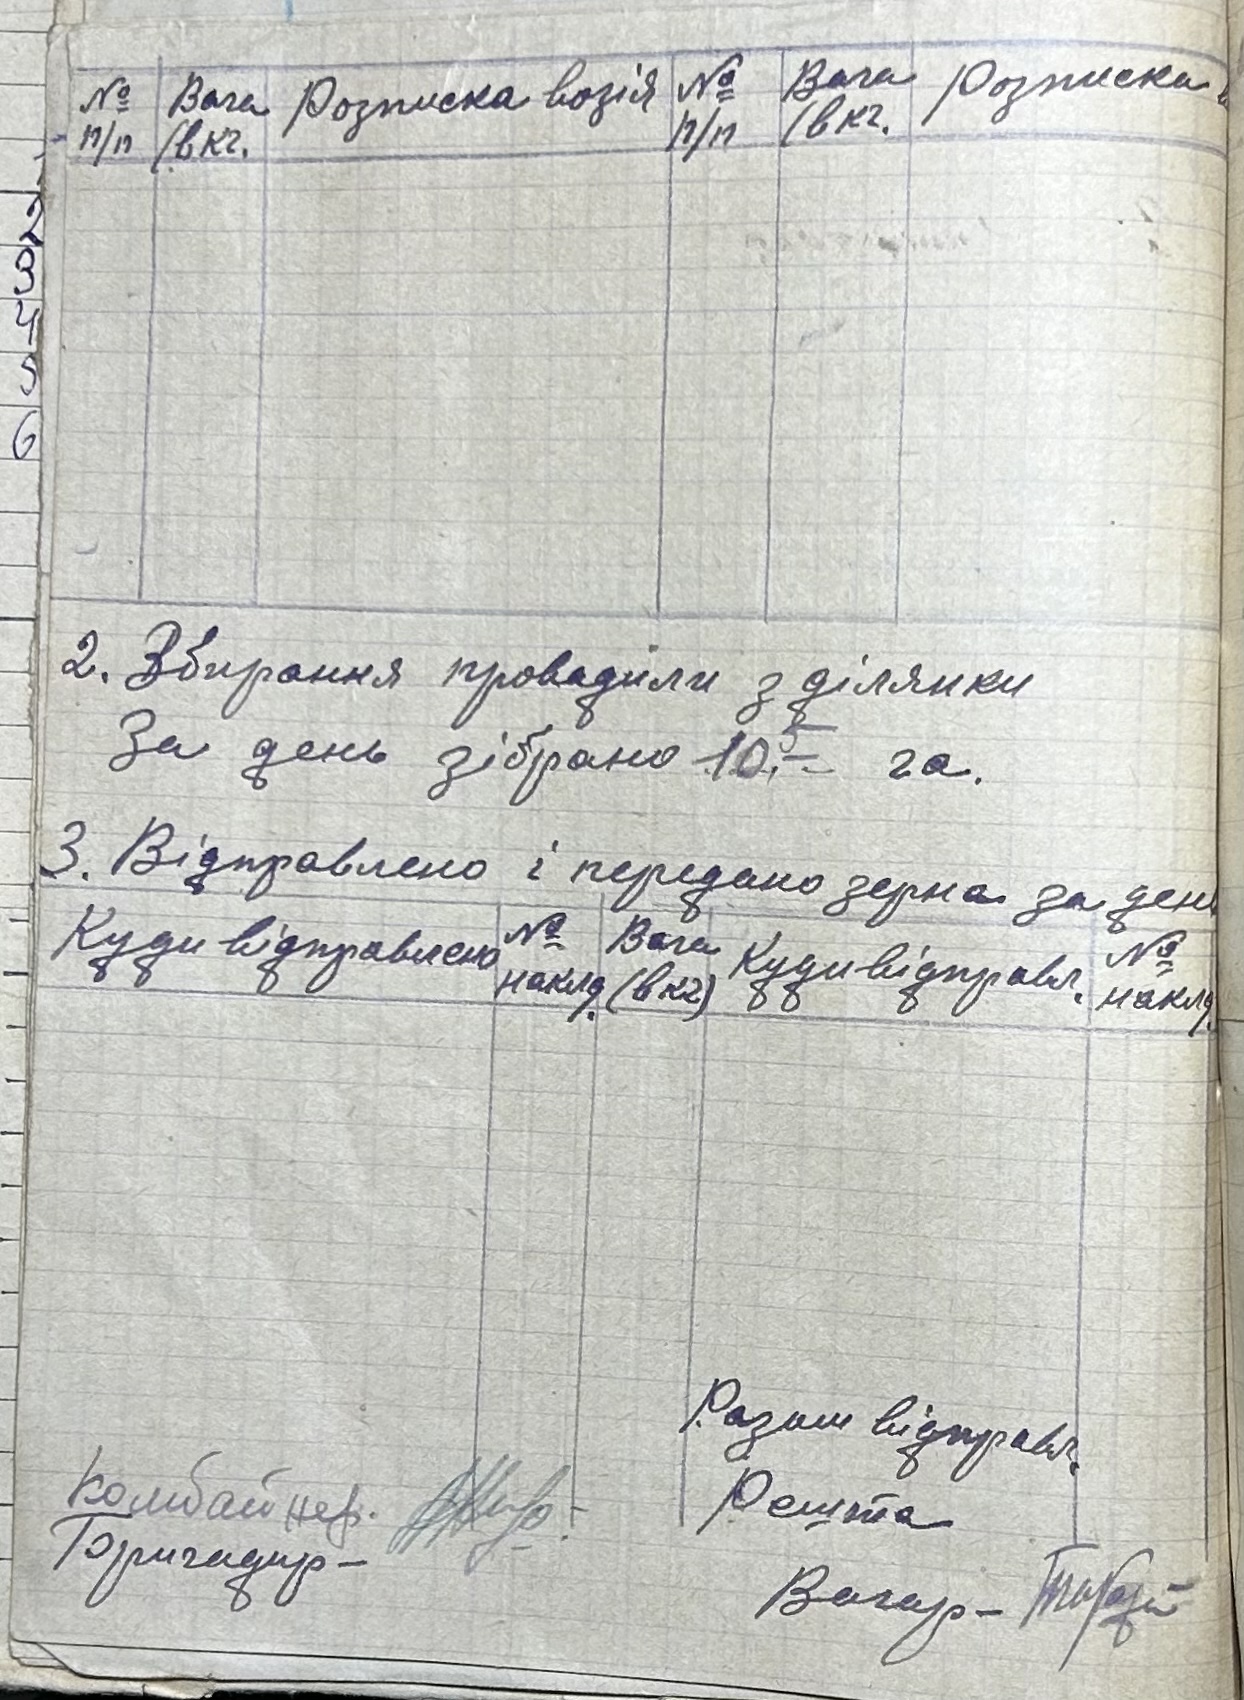 2
3
4
5
6
№ п/п Вага (в кг. Розписка возія № п/п Вага (в кг. Розписка
2. Збирання провадили з ділянки
За день зібрано 10,5 га.
3. Відправлено і передано зерна за ден
Куди відправлено № наклд. Вага (в кг) Куди відправл. № наклд.
Разом відправл.
Комбайнер.
Решта
Бригадир-
Вагар-